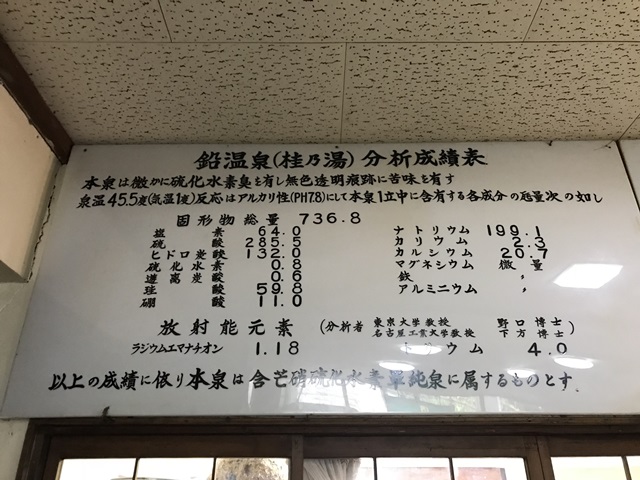 鉛温泉(桂乃湯)分析成績表
本泉は微かに硫化水素臭を有し無色透明痕跡に苦味を有す
泉温45.5度(気温1度)反応はアルカリ性(PH7.8)にして本泉1立中に含有する各成分の瓱量次の如し
固形物総量 736.8
塩素 64.0 ナトリウム 199.1
硫酸 285.5 カリウム 2.3
ヒドロ炭酸 132.0 カルシウム 20.7
硫化水素 0.8 マグネシウム 微量
遊离炭酸 0.6 鉄 〃
珪酸 59.8 アルミニウム 〃
硼酸 11.0
放射能元素 (分析者 東京大学教授 野口博士
名古屋工業大学教授 下方博士)
ラジウムエマナチオン 1.18 トリウム 4.0
以上の成績に依り本泉は含芒硝硫化水素単純泉に属するものとす.